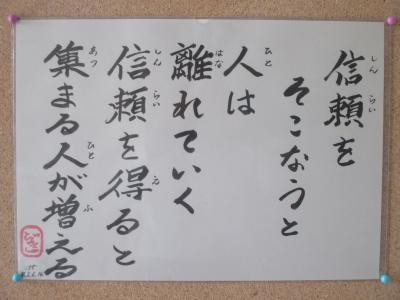 信頼を
そこなうと
人は
離れていく
信頼を得ると
集まる人が増える